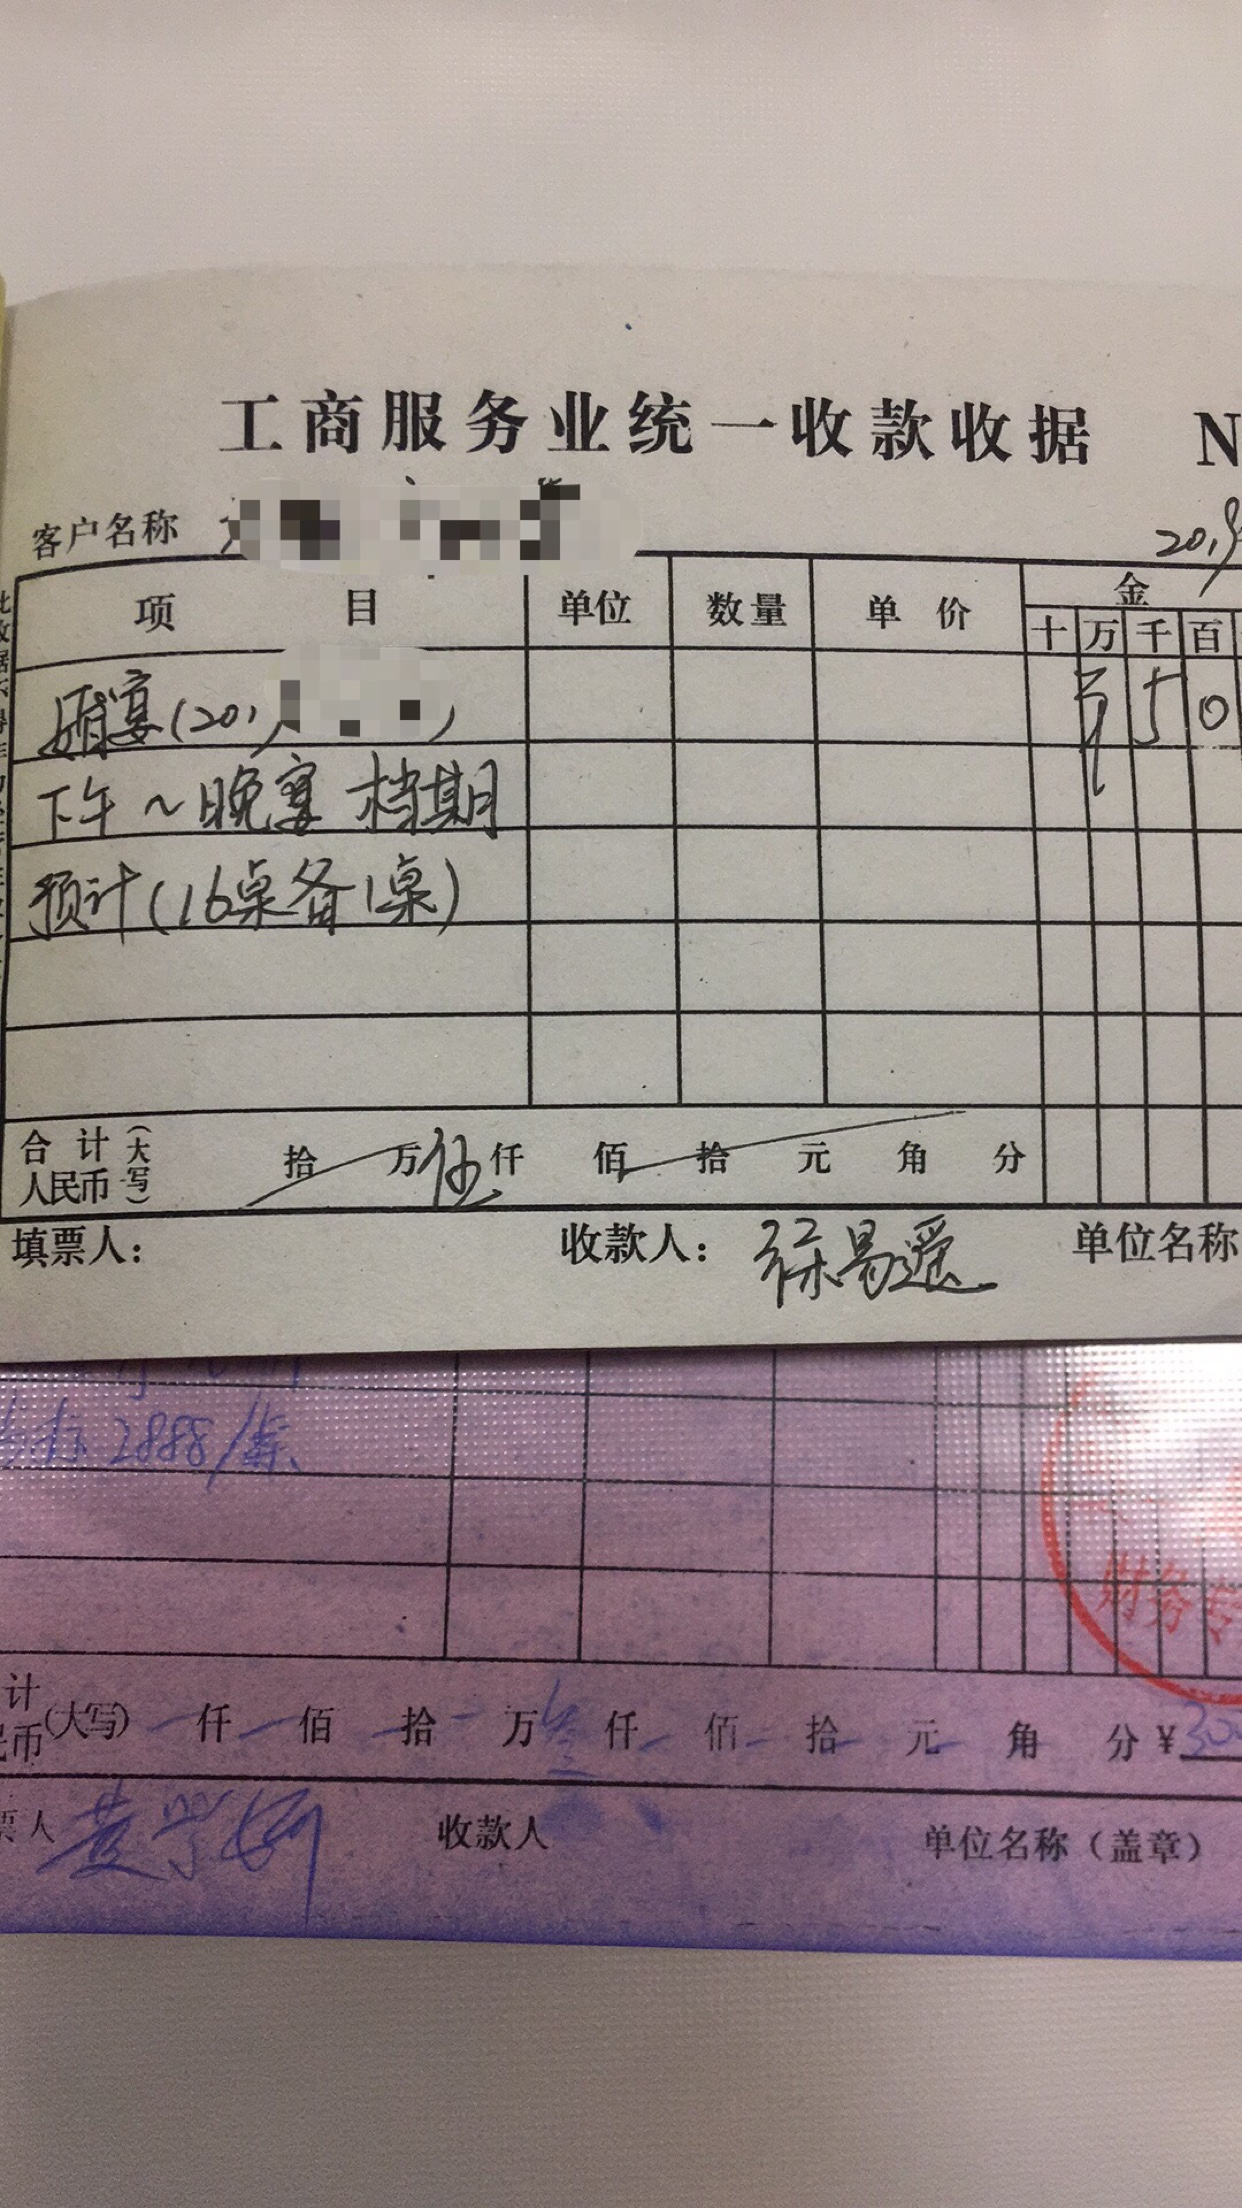 工商服务业统一收款收据 N
客户名称
20,9
项 目 单位 数量 单 价 金
十 万 千 百
婚宴(201
¥ 5 0
下午～晚宴 档期
预计(16桌备1桌)
合计人民币(大写) 拾 万 伍 仟 佰 拾 元 角 分
填票人: 收款人: 徐易遥 单位名称
2888/桌
财务专
计 民币(大写) 仟 佰 拾 万 叁 仟 佰 拾 元 角 分 ¥ 300
票人 收款人 单位名称(盖章)